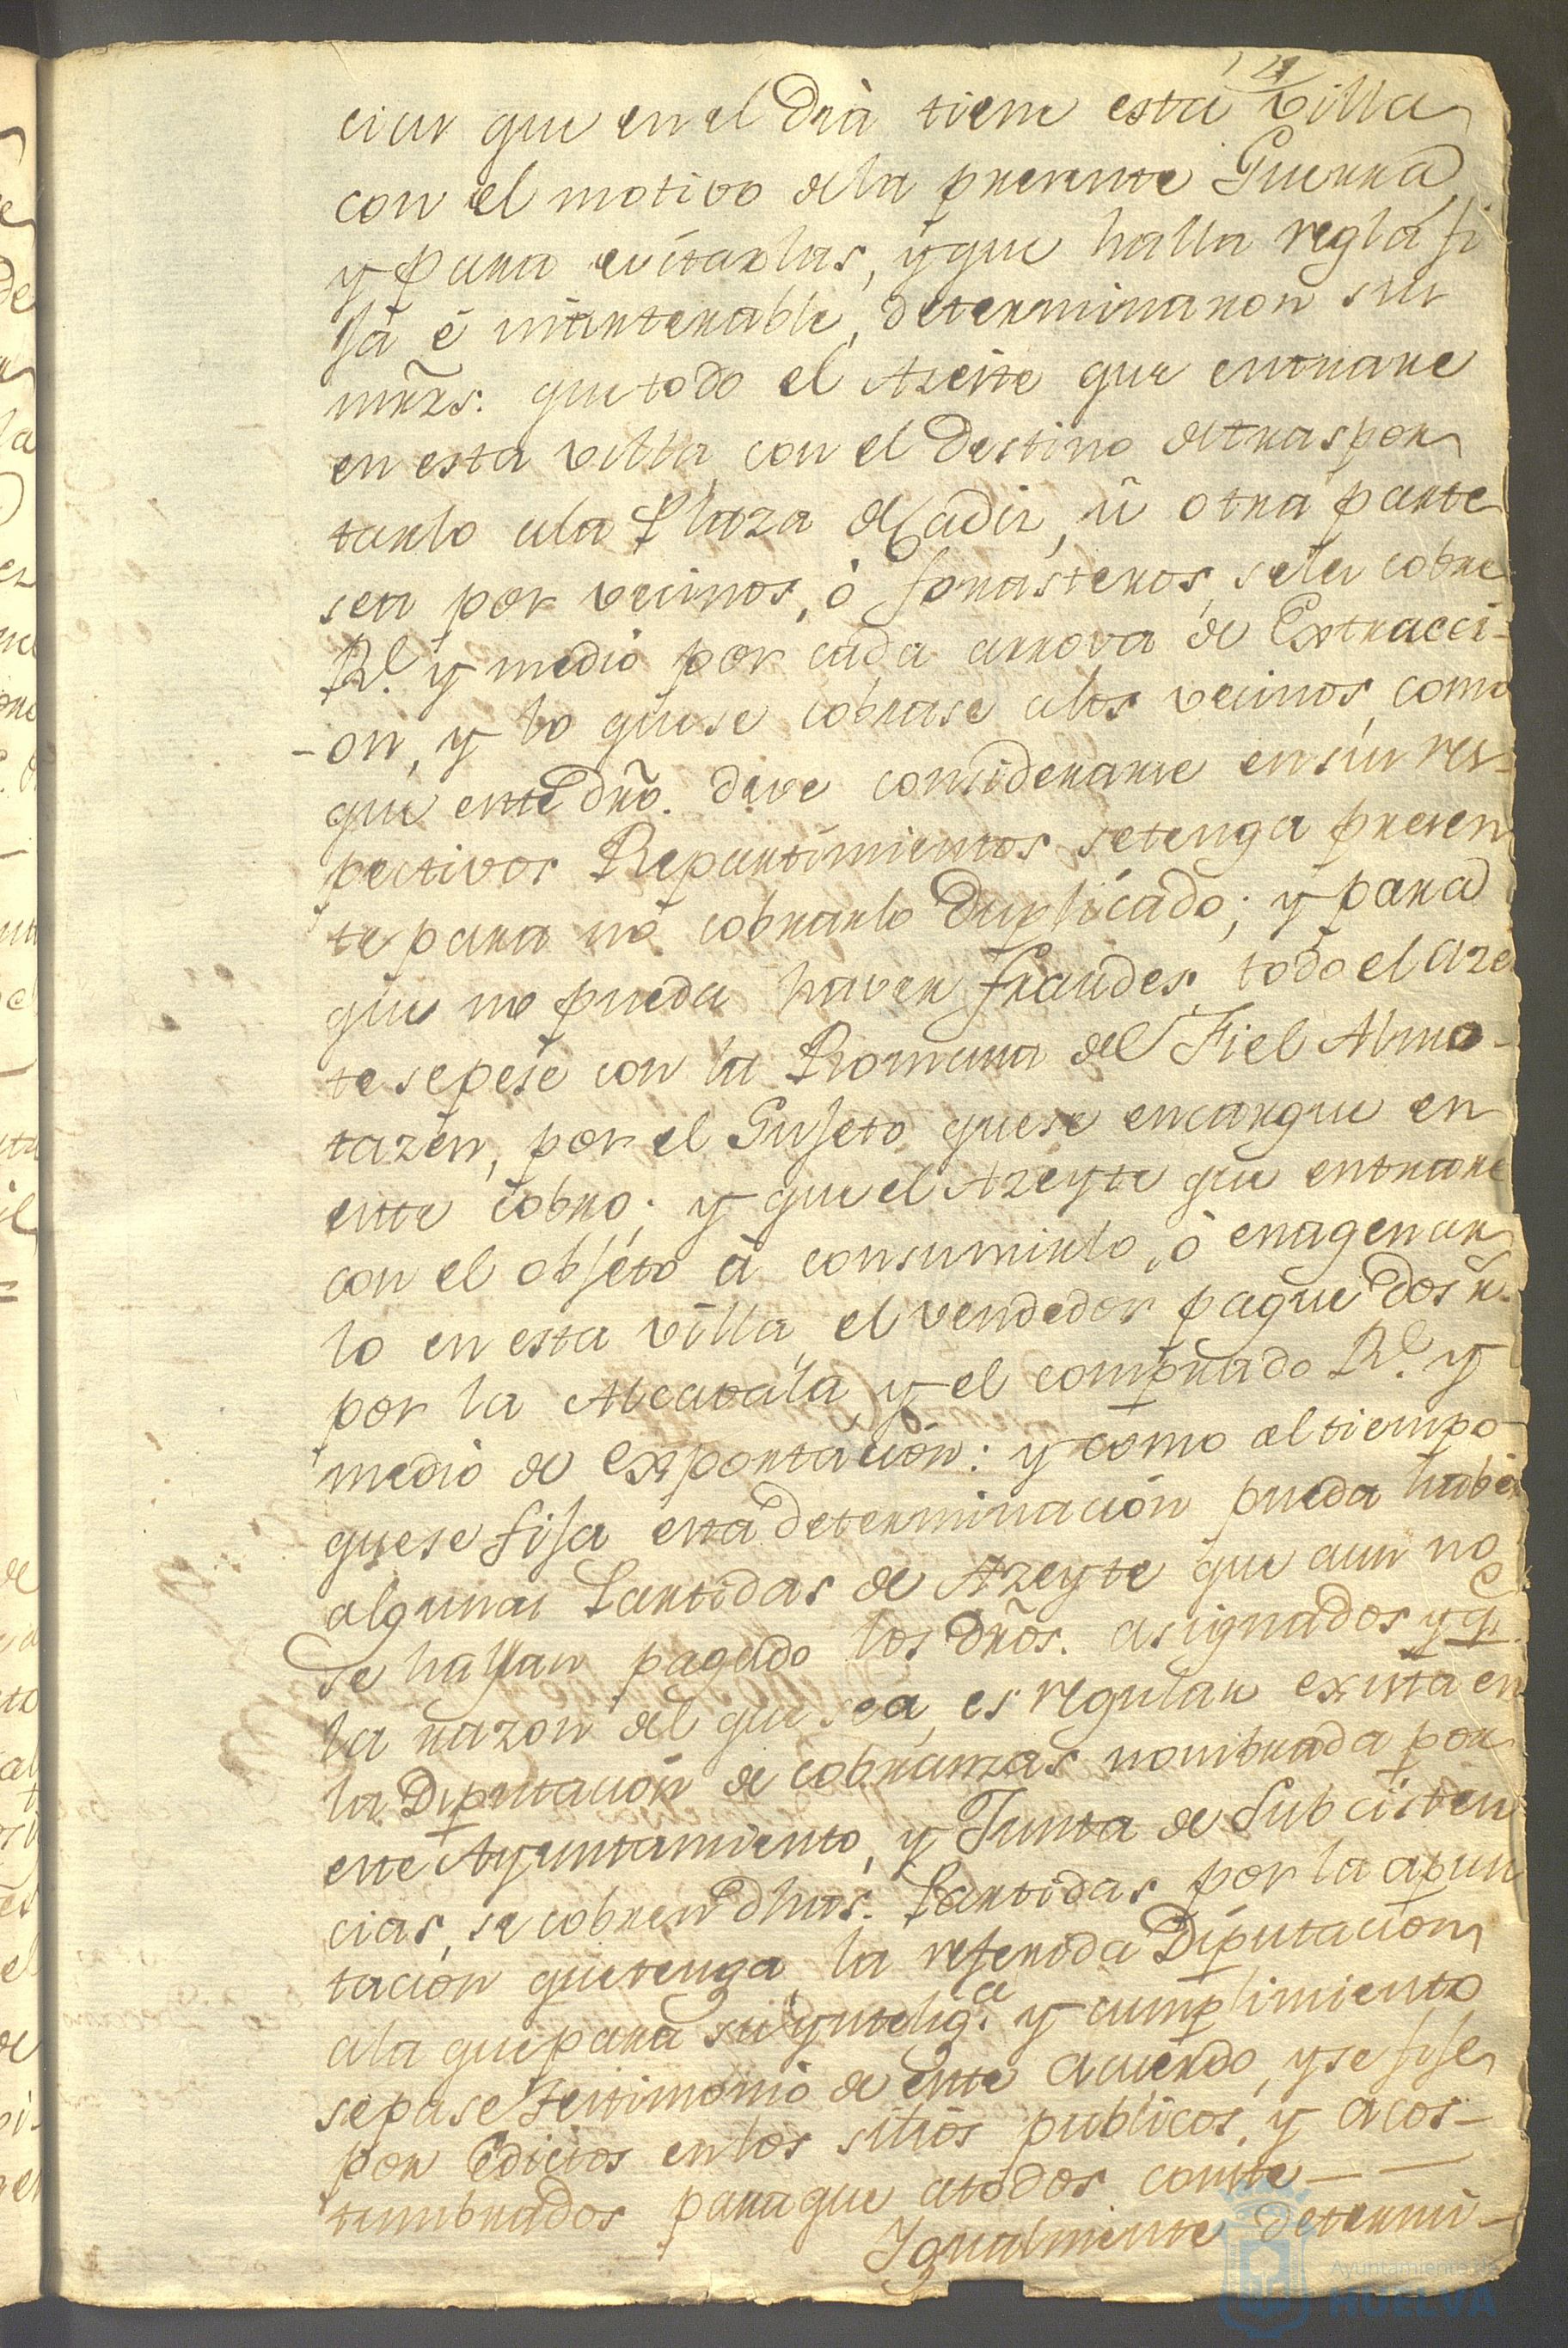 14
cias que en el Dia tiene esta Villa
con el motivo dela presente Guerra
y para evitarlas, y que halla regla fi
ja é inalterable, determinaron sus
mrzs. que todo el Azeite que entrare
en esta villa con el Destino detraspor
tarlo ala Plaza de Cadiz, ú otra parte
sea por vecinos, ó forasteros, sele cobre
Rl. y medio por cada arrova de Extracci-
-on, y lo quese cobrase alos vecinos, como
que este dro. deve considerarse ensus res-
pectivos Repartimientos setenga presen
te para no cobrarlo Duplicado; y para
que no pueda haver fraudes, todo el aze
te sepese con la Romana del Fiel Almo-
tazén, por el Sujeto quese encargue en
este cobro; y que el Azeyte que entrare
con el objéto á consumirlo, ó enagenar
lo en esta villa, el vendedor pague dos r.
por la Alcavala, y el comprado Rl. y
medio de exportación: y como al tiempo
quese fija esta determinación pueda haber
algunas Partidas de Azeyte que aun no
se hallan pagado los dros. asignados y qe.
la razon del que sea, es regular exista en
la Diputación de cobranzas nombrada por
este Ayuntamiento, y Junta de Subcisten
cias, se cobren dhas. Partidas por la apun
tación quetenga la referida Diputacion
ala que para su yntelig.a y cumplimiento
sepase Testimonio de este acuerdo, yse fije
por Edictos enlos sitios publicos, y acos-
tumbrados paraque atodos conste — —
Igualmente determi-
Ayuntamiento de
HUELVA